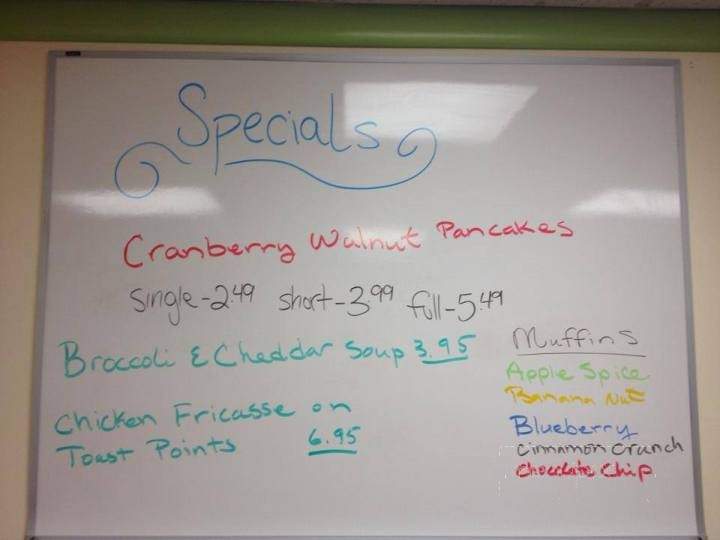 Specials
Cranberry Walnut Pancakes
single-2.49 short-3.99 full-5.49
Broccoli & Cheddar Soup 3.95
Chicken Fricasse on
Toast Points 6.95
Muffins
Apple Spice
Banana Nut
Blueberry
Cinnamon Crunch
Chocolate Chip